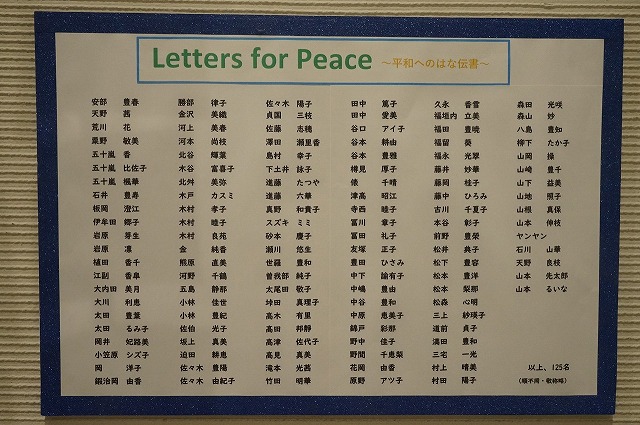 Letters for Peace ～平和へのはな伝書～
安部 豊春
天野 茜
荒川 花
粟野 敏美
五十嵐 香
五十嵐 比佐子
五十嵐 楓華
石井 豊寿
板岡 澄江
伊牟田 郷子
岩原 芽生
岩原 凛
植田 香千
江副 香阜
大内田 美月
大川 利恵
太田 豊葉
太田 るみ子
岡井 妃路美
小笠原 シズ子
岡 洋子
鍜治岡 由香
勝部 律子
金沢 美織
河上 美春
河本 尚枝
北谷 輝葉
木谷 富喜子
北舛 美弥
木戸 カスミ
木村 孝子
木村 睦子
木村 良苑
金 純香
熊原 直美
河野 千鶴
五島 静那
小林 佳世
小林 豊紀
佐伯 光子
坂上 真美
迫田 耕恵
佐々木 豊陽
佐々木 由紀子
佐々木 陽子
貞国 三枝
佐藤 志穂
澤田 瀬里香
島村 幸子
下土井 詠子
進藤 たつや
進藤 六華
真野 和貴子
スズキ ミミ
砂本 慶子
瀬川 悠生
世羅 豊和
曽我部 純子
太尾田 敬子
垰田 真理子
高木 有里
高田 邦靜
高津 佐代子
高見 真美
滝本 光茜
竹田 明華
田中 篤子
田中 愛美
谷口 アイ子
谷本 耕由
谷本 豊雅
樽見 厚子
俵 千晴
津高 昭江
寺西 睦子
冨川 章子
冨田 礼子
友塚 正子
豊田 ひさみ
中下 諭有子
中嶋 豊由
中谷 豊和
中原 恵美子
錦戸 彩那
野中 佳子
野間 千恵梨
花岡 由香
原野 アツ子
久永 香雪
福垣内 立美
福田 豊暁
福留 葵
福永 光翠
藤井 妙華
藤岡 桂子
藤中 ひろみ
古川 千夏子
本谷 彰子
前野 豊榮
松井 典子
松下 豊容
松本 豊洋
松本 梨那
松森 心明
三上 紗瑛子
道前 貞子
溝田 豊和
三宅 一光
村上 晴美
村田 陽子
森田 光咲
森山 妙
八島 豊知
柳下 たか子
山岡 操
山崎 豊千
山下 益美
山地 照子
山根 真保
山本 伸枝
ヤンヤン
石川 山華
天野 良枝
山本 先太郎
山本 るいな
以上、125名
（順不同・敬称略）